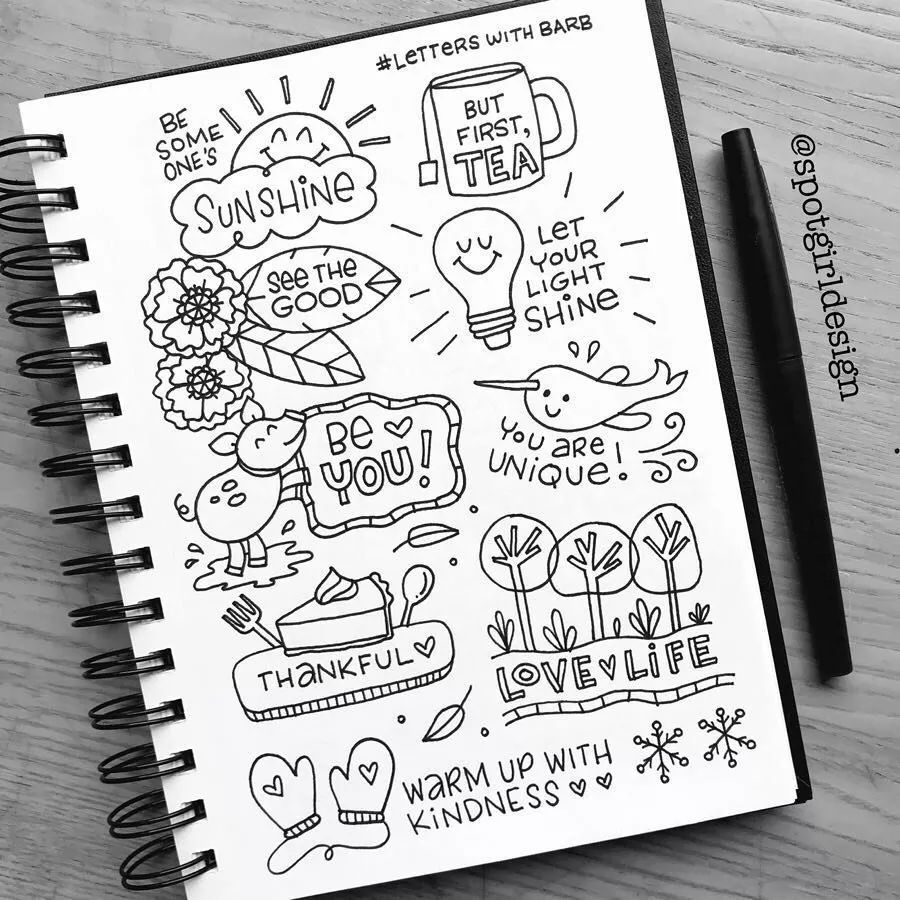 #LETTERS WITH BARB
BE
SOME
ONE'S
SUNSHiNE
BUT
FIRST,
TEA
SEE THE
GOOD
LET
YOUR
LIGHT
SHiNE
BE ♡
YOU!
YOU ARE
UNiQUE!
THANKFUL♡
LOVE♡LiFE
WARM UP WITH
KiNDNESS ♡ ♡
@spotgirldesign